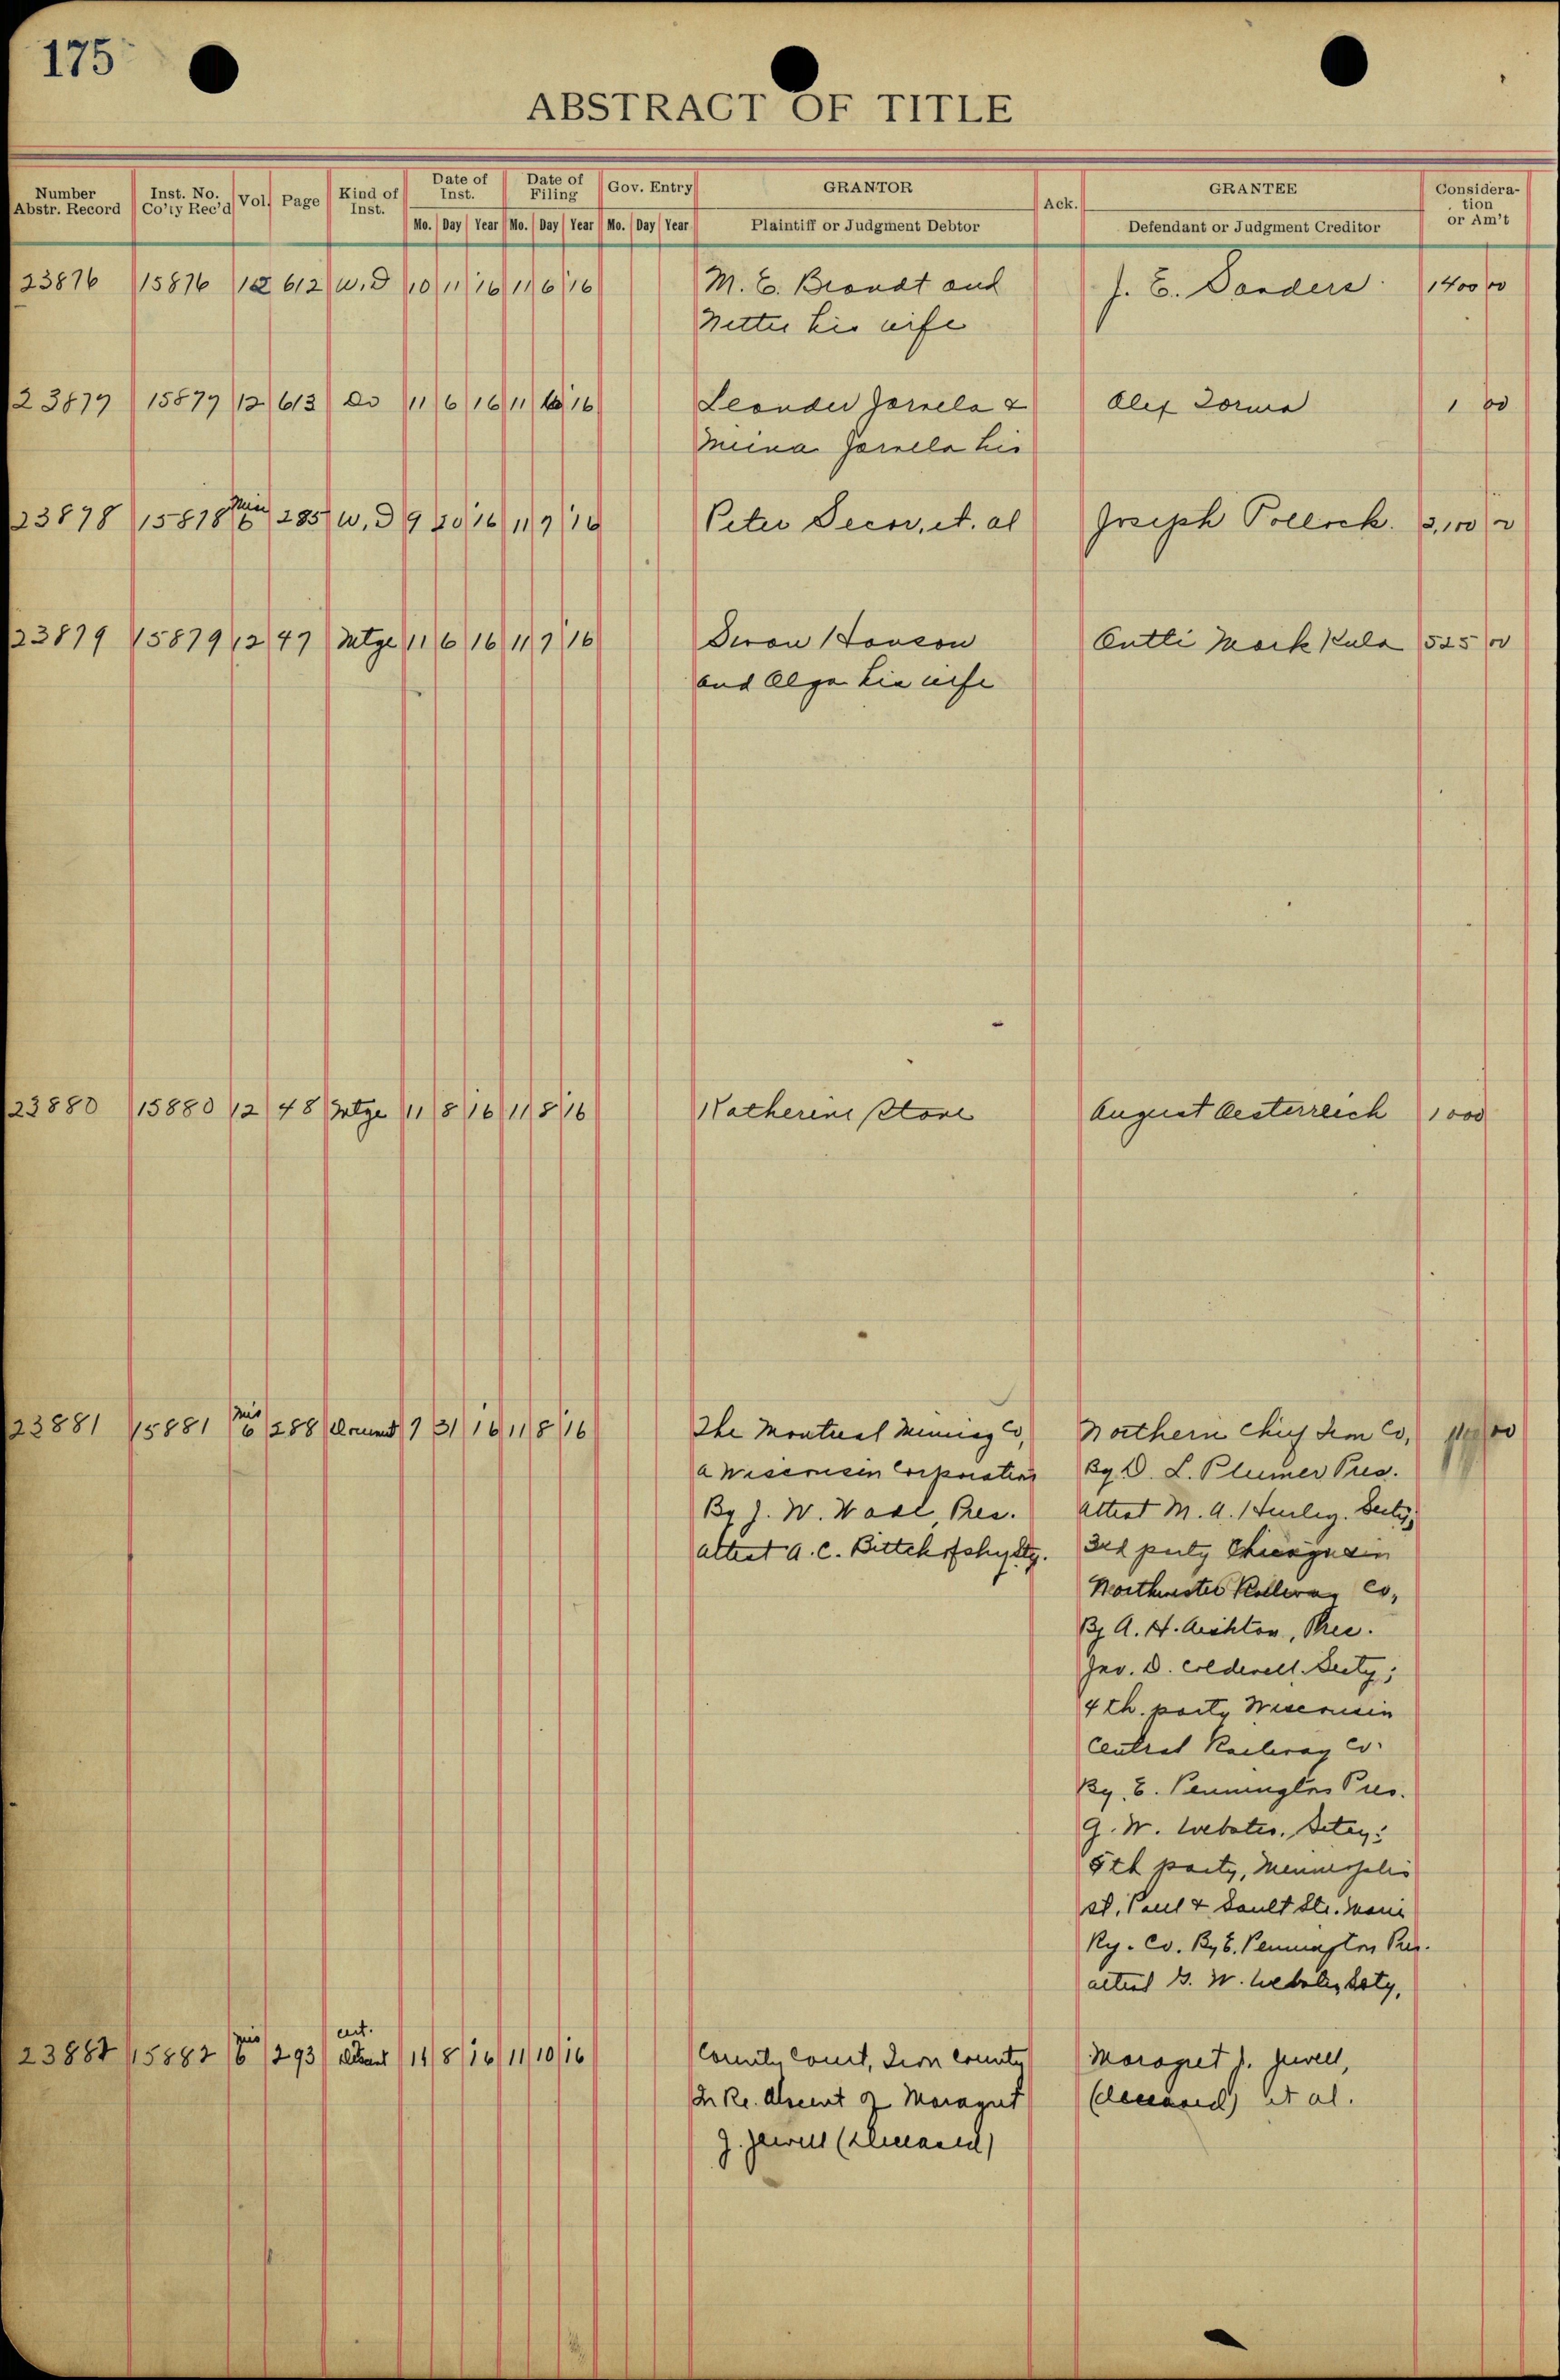 175
ABSTRACT OF TITLE
Number Abstr. Record | Inst. No. Co'ty Rec'd | Vol. | Page | Kind of Inst. | Date of Inst. | Date of Filing | Gov. Entry | GRANTOR | Ack. | GRANTEE | Considera-tion or Am't
Mo. Day Year Mo. Day Year Mo. Day Year | Plaintiff or Judgment Debtor | Defendant or Judgment Creditor
23876 15876 12 612 W.D 10 11 16 11 6 16 M. E. Brandt and J. E. Sanders 1400 00
Nettie his wife
23877 15877 12 613 Do 11 6 16 11 16 Leander Jarvela & Alex 1 00
Miina Jarvela his
23878 15878 Mis 6 285 W.D 9 20 16 11 7 16 Peter Decor, et. al Joseph Pollock. 2,100
23879 15879 12 47 Mtge 11 6 16 11 7 16 Hanson Antti Mark Kula 525 00
and Olga his wife
23880 15880 12 48 Mtge 11 8 16 11 8 16 Katherine Stone August Oesterreich 1000
23881 15881 Mis 6 288 7 31 16 11 8 16 The Montreal Mining Co, Northern Chief Iron Co,
a Wisconsin Corporation By D. L. Plumer Pres.
By J. W. Pres. Attest M. A. Hurley. Secty;
attest A. C. 3rd party Chicago
Northwester Railway Co,
By A. H. Pres.
Jno. D. Colderell. Secty;
4th. party Wisconsin
Central Railway Co.
By. E. Pennington Pres.
G. W. Webster. Setcy:
5th party, Minneapolis
St. Paul & Sault Ste. Marie
Ry. Co. By E. Pennington Pres.
attest G. W. Webster Scty,
cert.
23882 15882 Mis 6 293 11 8 16 11 10 16 County Court, Iron County Maragret J. Jewell,
In Re. of Maragret (deceased) et al.
J. Jewell (deceased)